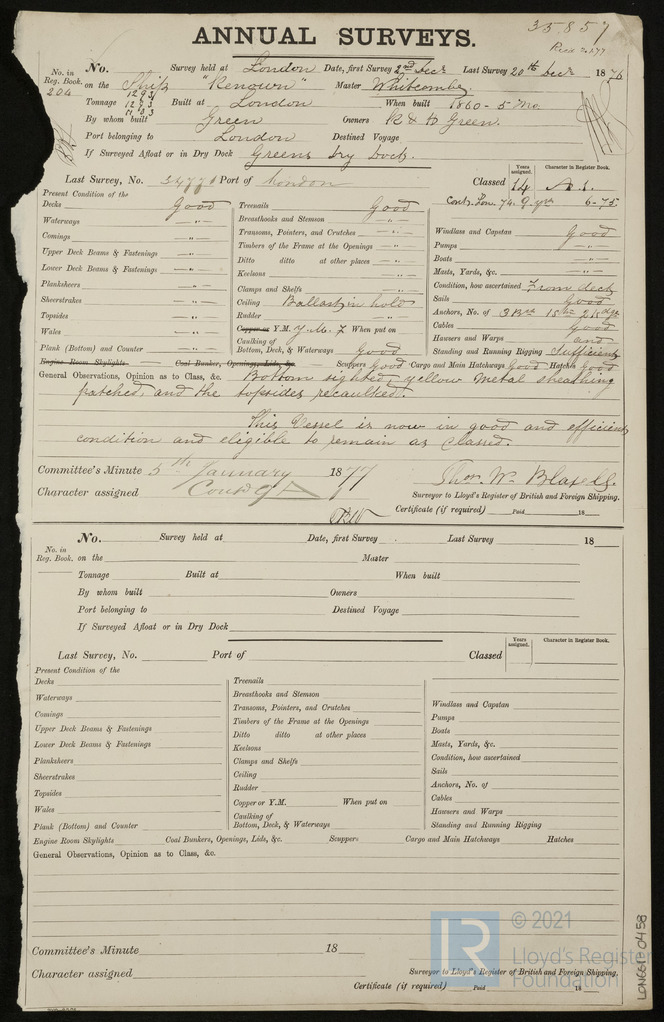 35857
ANNUAL SURVEYS.
No. in Reg. Book.
204
No. Survey held at London Date, first Survey 2nd Decr Last Survey 20th Decr 1876
on the Ship "Renown" Master Whitcombe
Tonnage 1293 1293 Built at London When built 1860 - 5 Mo.
By whom built Green Owners R & H Green.
Port belonging to London Destined Voyage
If Surveyed Afloat or in Dry Dock Greens Dry Dock.
Last Survey, No. 34771 Port of London Classed
Years assigned. 14
Character in Register Book. A.1.
Cont. Lon. 74. 9. yrs 6-75
Present Condition of the
Decks Good
Waterways - " -
Comings - " -
Upper Deck Beams & Fastenings - " -
Lower Deck Beams & Fastenings - " -
Planksheers - " -
Sheerstrakes - " -
Topsides - " -
Wales - " -
Plank (Bottom) and Counter - " -
Treenails Good
Breasthooks and Stemson - " -
Transoms, Pointers, and Crutches - " -
Timbers of the Frame at the Openings - " -
Ditto ditto at other places - " -
Keelsons - " -
Clamps and Shelfs - " -
Ceiling Ballast in hold
Rudder - " -
Copper or Y.M. Y. M. 7 When put on
Caulking of Bottom, Deck, & Waterways Good
Windlass and Capstan Good
Pumps - " -
Boats - " -
Masts, Yards, &c. - " -
Condition, how ascertained From deck
Sails Good
Anchors, No. of 3 Brs 1 Sm 2 Kedges
Cables Good
Hawsers and Warps and
Standing and Running Rigging Sufficient
Engine Room Skylights Coal Bunker, Openings, Lids, &c. Scuppers Good Cargo and Main Hatchways Good Hatches Good
General Observations, Opinion as to Class, &c. Bottom sighted, yellow metal sheathing
patched, and the topsides recaulked.
This Vessel is now in good and efficient
condition and eligible to remain as classed.
Committee's Minute 5th January 1877
Character assigned Contd 9 A 1
Thos. W. Blasell
Surveyor to Lloyd's Register of British and Foreign Shipping.
Certificate (if required) Paid 18
No. in Reg. Book.
No. Survey held at Date, first Survey Last Survey 18
on the Master
Tonnage Built at When built
By whom built Owners
Port belonging to Destined Voyage
If Surveyed Afloat or in Dry Dock
Last Survey, No. Port of Classed
Years assigned.
Character in Register Book.
Present Condition of the
Decks
Waterways
Comings
Upper Deck Beams & Fastenings
Lower Deck Beams & Fastenings
Planksheers
Sheerstrakes
Topsides
Wales
Plank (Bottom) and Counter
Treenails
Breasthooks and Stemson
Transoms, Pointers, and Crutches
Timbers of the Frame at the Openings
Ditto ditto at other places
Keelsons
Clamps and Shelfs
Ceiling
Rudder
Copper or Y.M. When put on
Caulking of Bottom, Deck, & Waterways
Windlass and Capstan
Pumps
Boats
Masts, Yards, &c.
Condition, how ascertained
Sails
Anchors, No. of
Cables
Hawsers and Warps
Standing and Running Rigging
Engine Room Skylights Coal Bunkers, Openings, Lids, &c. Scuppers Cargo and Main Hatchways Hatches
General Observations, Opinion as to Class, &c.
Committee's Minute 18
Character assigned
Surveyor to Lloyd's Register of British and Foreign Shipping.
Certificate (if required) Paid 18
LR
© 2021
Lloyd's Register
Foundation
LON661-0458